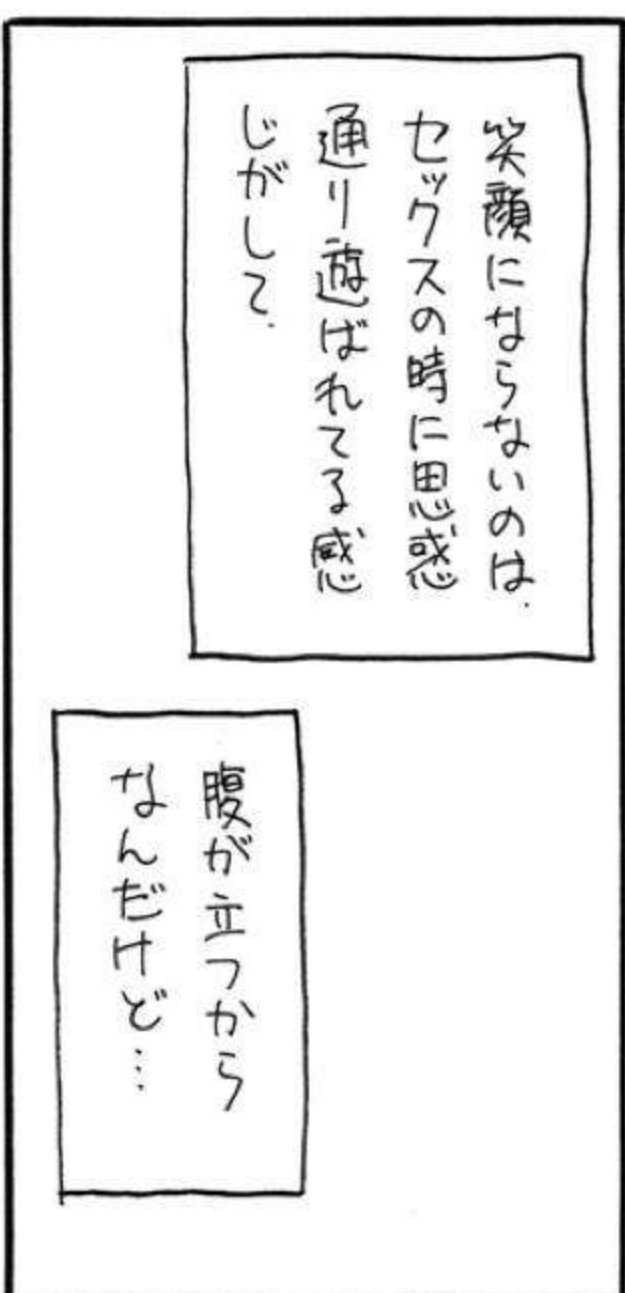 笑顔にならないのは、
セックスの時に思惑
通り遊ばれてる感
じがして、
腹が立つから
なんだけど…